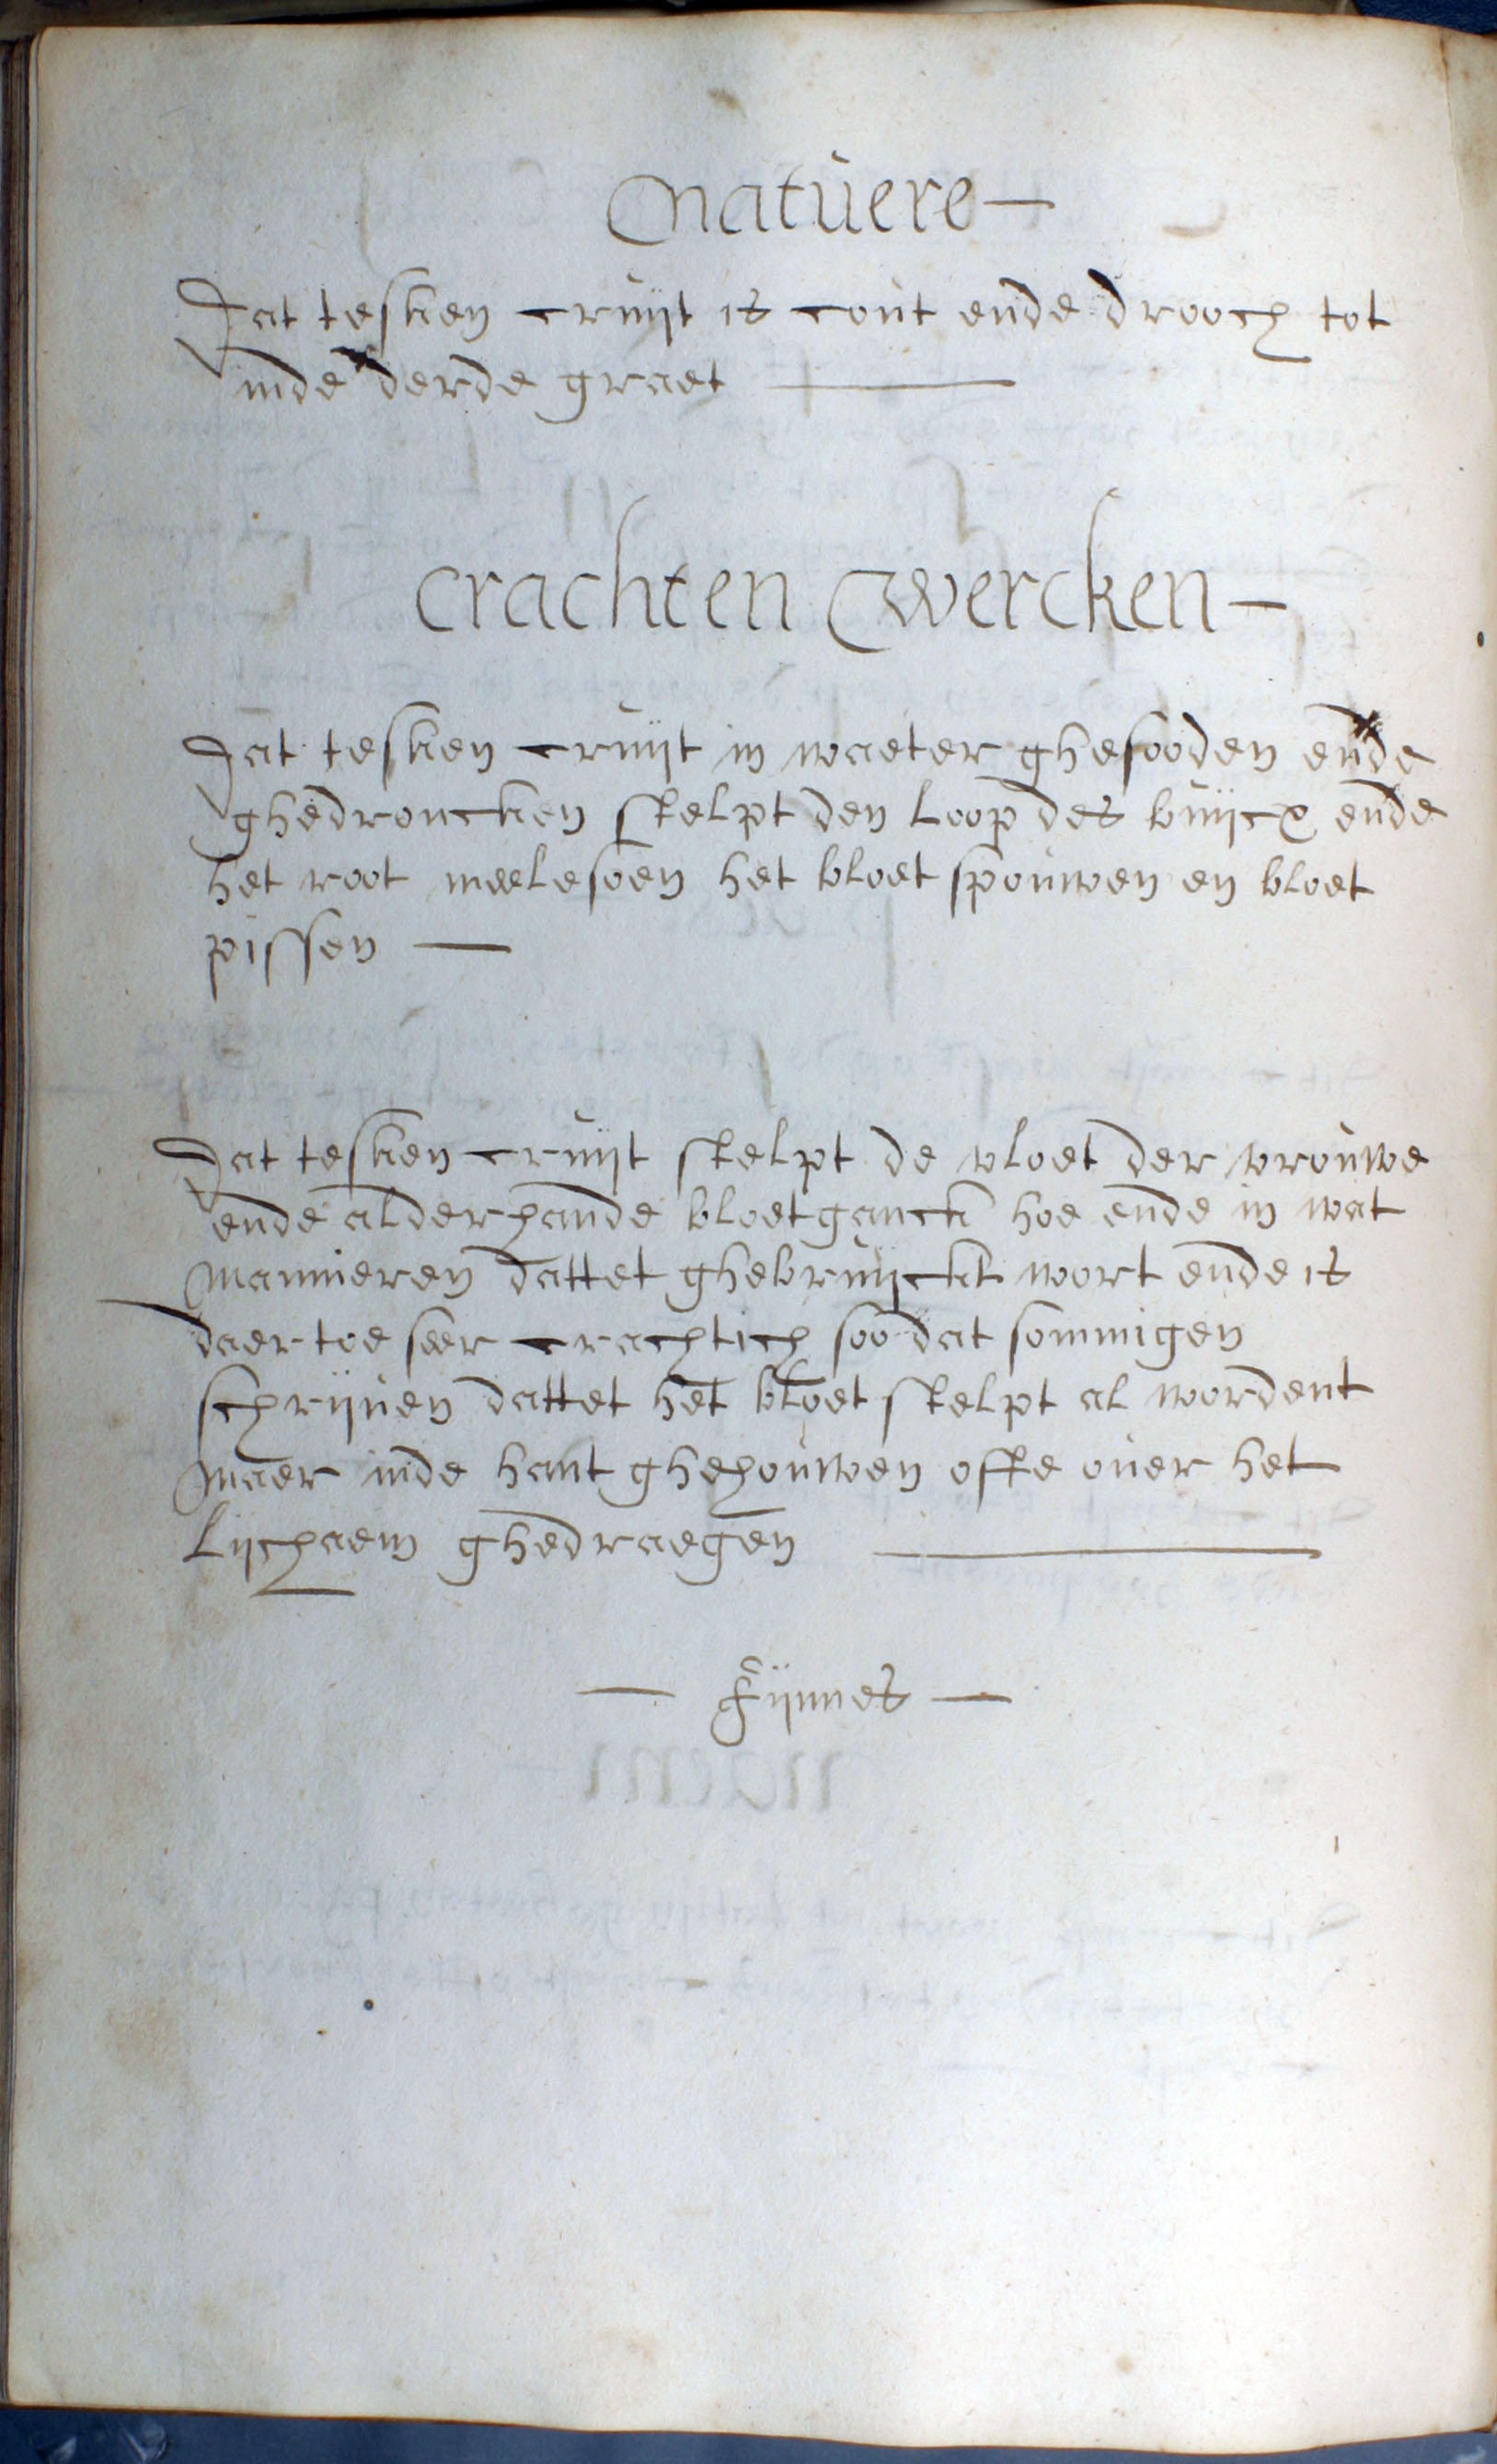 Natuere
Dat tesken cruijt is cout ende drooch tot
inde derde graet
Crachten Wercken
Dat tesken cruijt in waeter ghesooden ende
ghedroncken stelpt den loop des buijcx ende
het root meelesoen het bloet spouwen en bloet
pissen
Dat tesken cruijt stelpt de vloet der vrouwe
ende alderhande bloetganck hoe ende in wat
mannieren dattet ghebruijckt wort ende is
daer toe seer crachtich soo dat sommigen
schrijuen dattet het bloet stelpt al wordent
maer inde hant ghehouwen ofte ouer het
lijchaem ghedraegen
Fijnnes